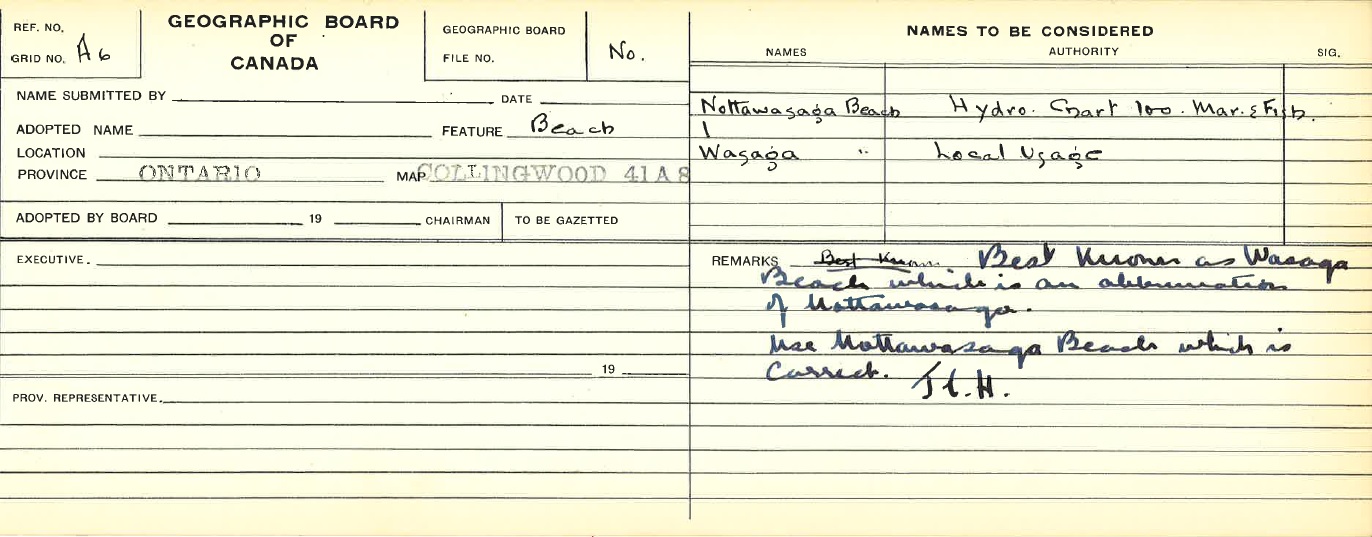 REF. NO.
GRID NO. A6
GEOGRAPHIC BOARD
OF
CANADA
GEOGRAPHIC BOARD
FILE NO.
No.
NAME SUBMITTED BY DATE
ADOPTED NAME FEATURE Beach
LOCATION
PROVINCE ONTARIO MAP COLLINGWOOD 41 A 8
ADOPTED BY BOARD 19 CHAIRMAN TO BE GAZETTED
EXECUTIVE.
19
PROV. REPRESENTATIVE.
NAMES TO BE CONSIDERED
NAMES AUTHORITY SIG.
Nottawasaga Beach Hydro. Chart 100. Mar. & Fish.
Wasaga " Local Usage
REMARKS Best Known Best Known as Wasaga
Beach which is an abbreviation
of Nottawasaga.
Use Nottawasaga Beach which is
Correct.